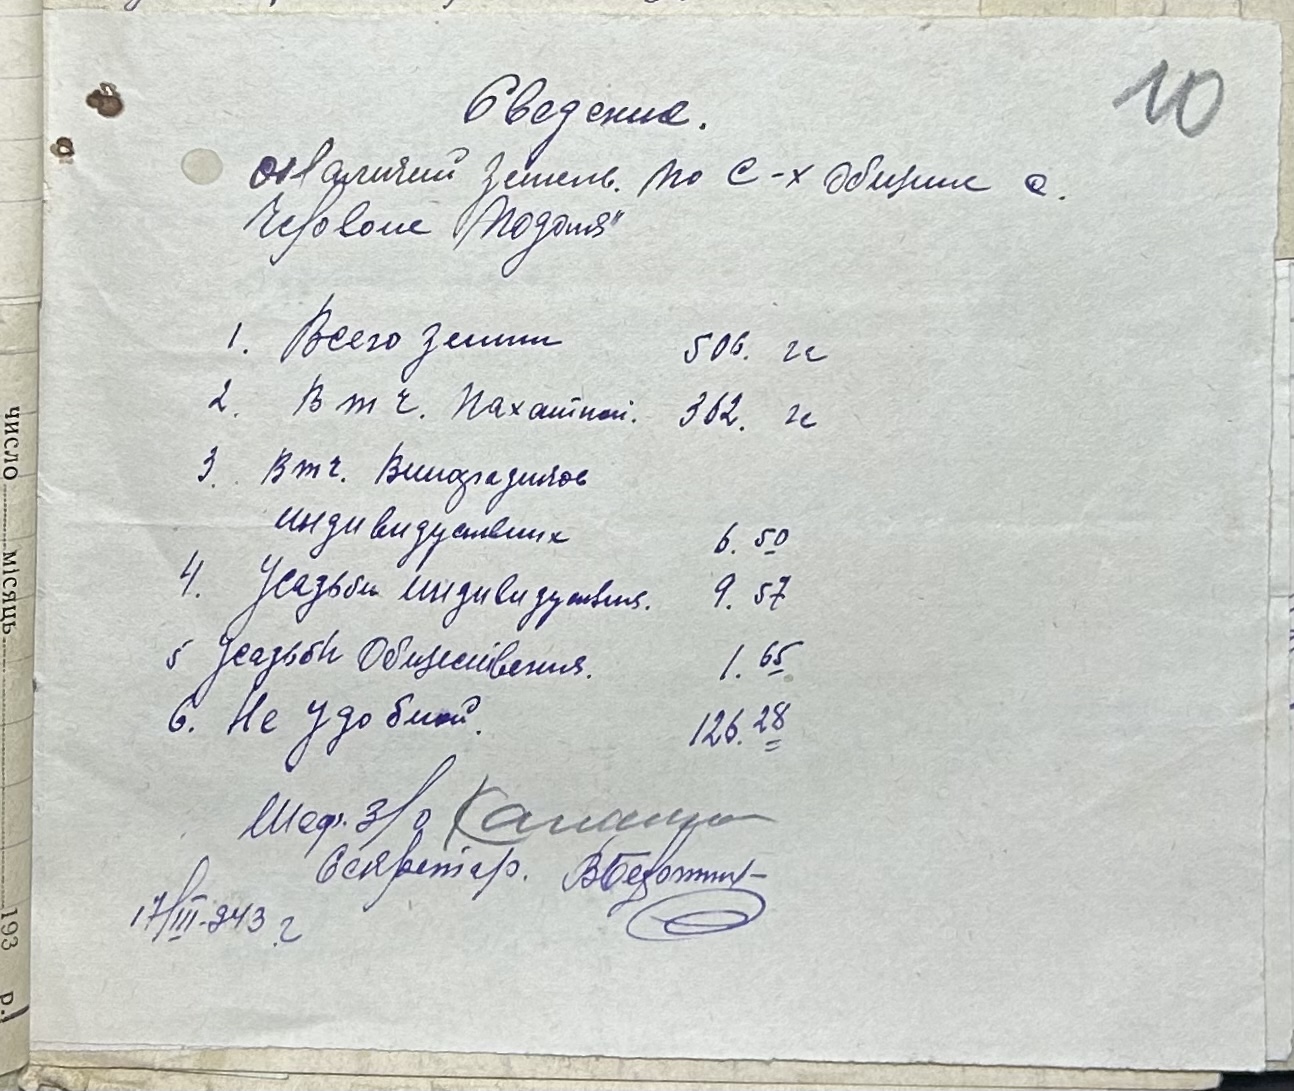 10
Сведения.
о наличии земель. по с-х общине с.
Червоне Подолля"
1. Всего земли 506. га
2. В т ч. Пахатной. 362. га
3. В т ч. Виноградников
индивидуальних 6. 50
4. Усадьби индивидуальния. 9. 57
5 Усадьби Общественния. 1. 65
6. Не удобной. 126. 28
Шеф. З/о
Секретар.
17/III-943 г
число
місяць
193
р.